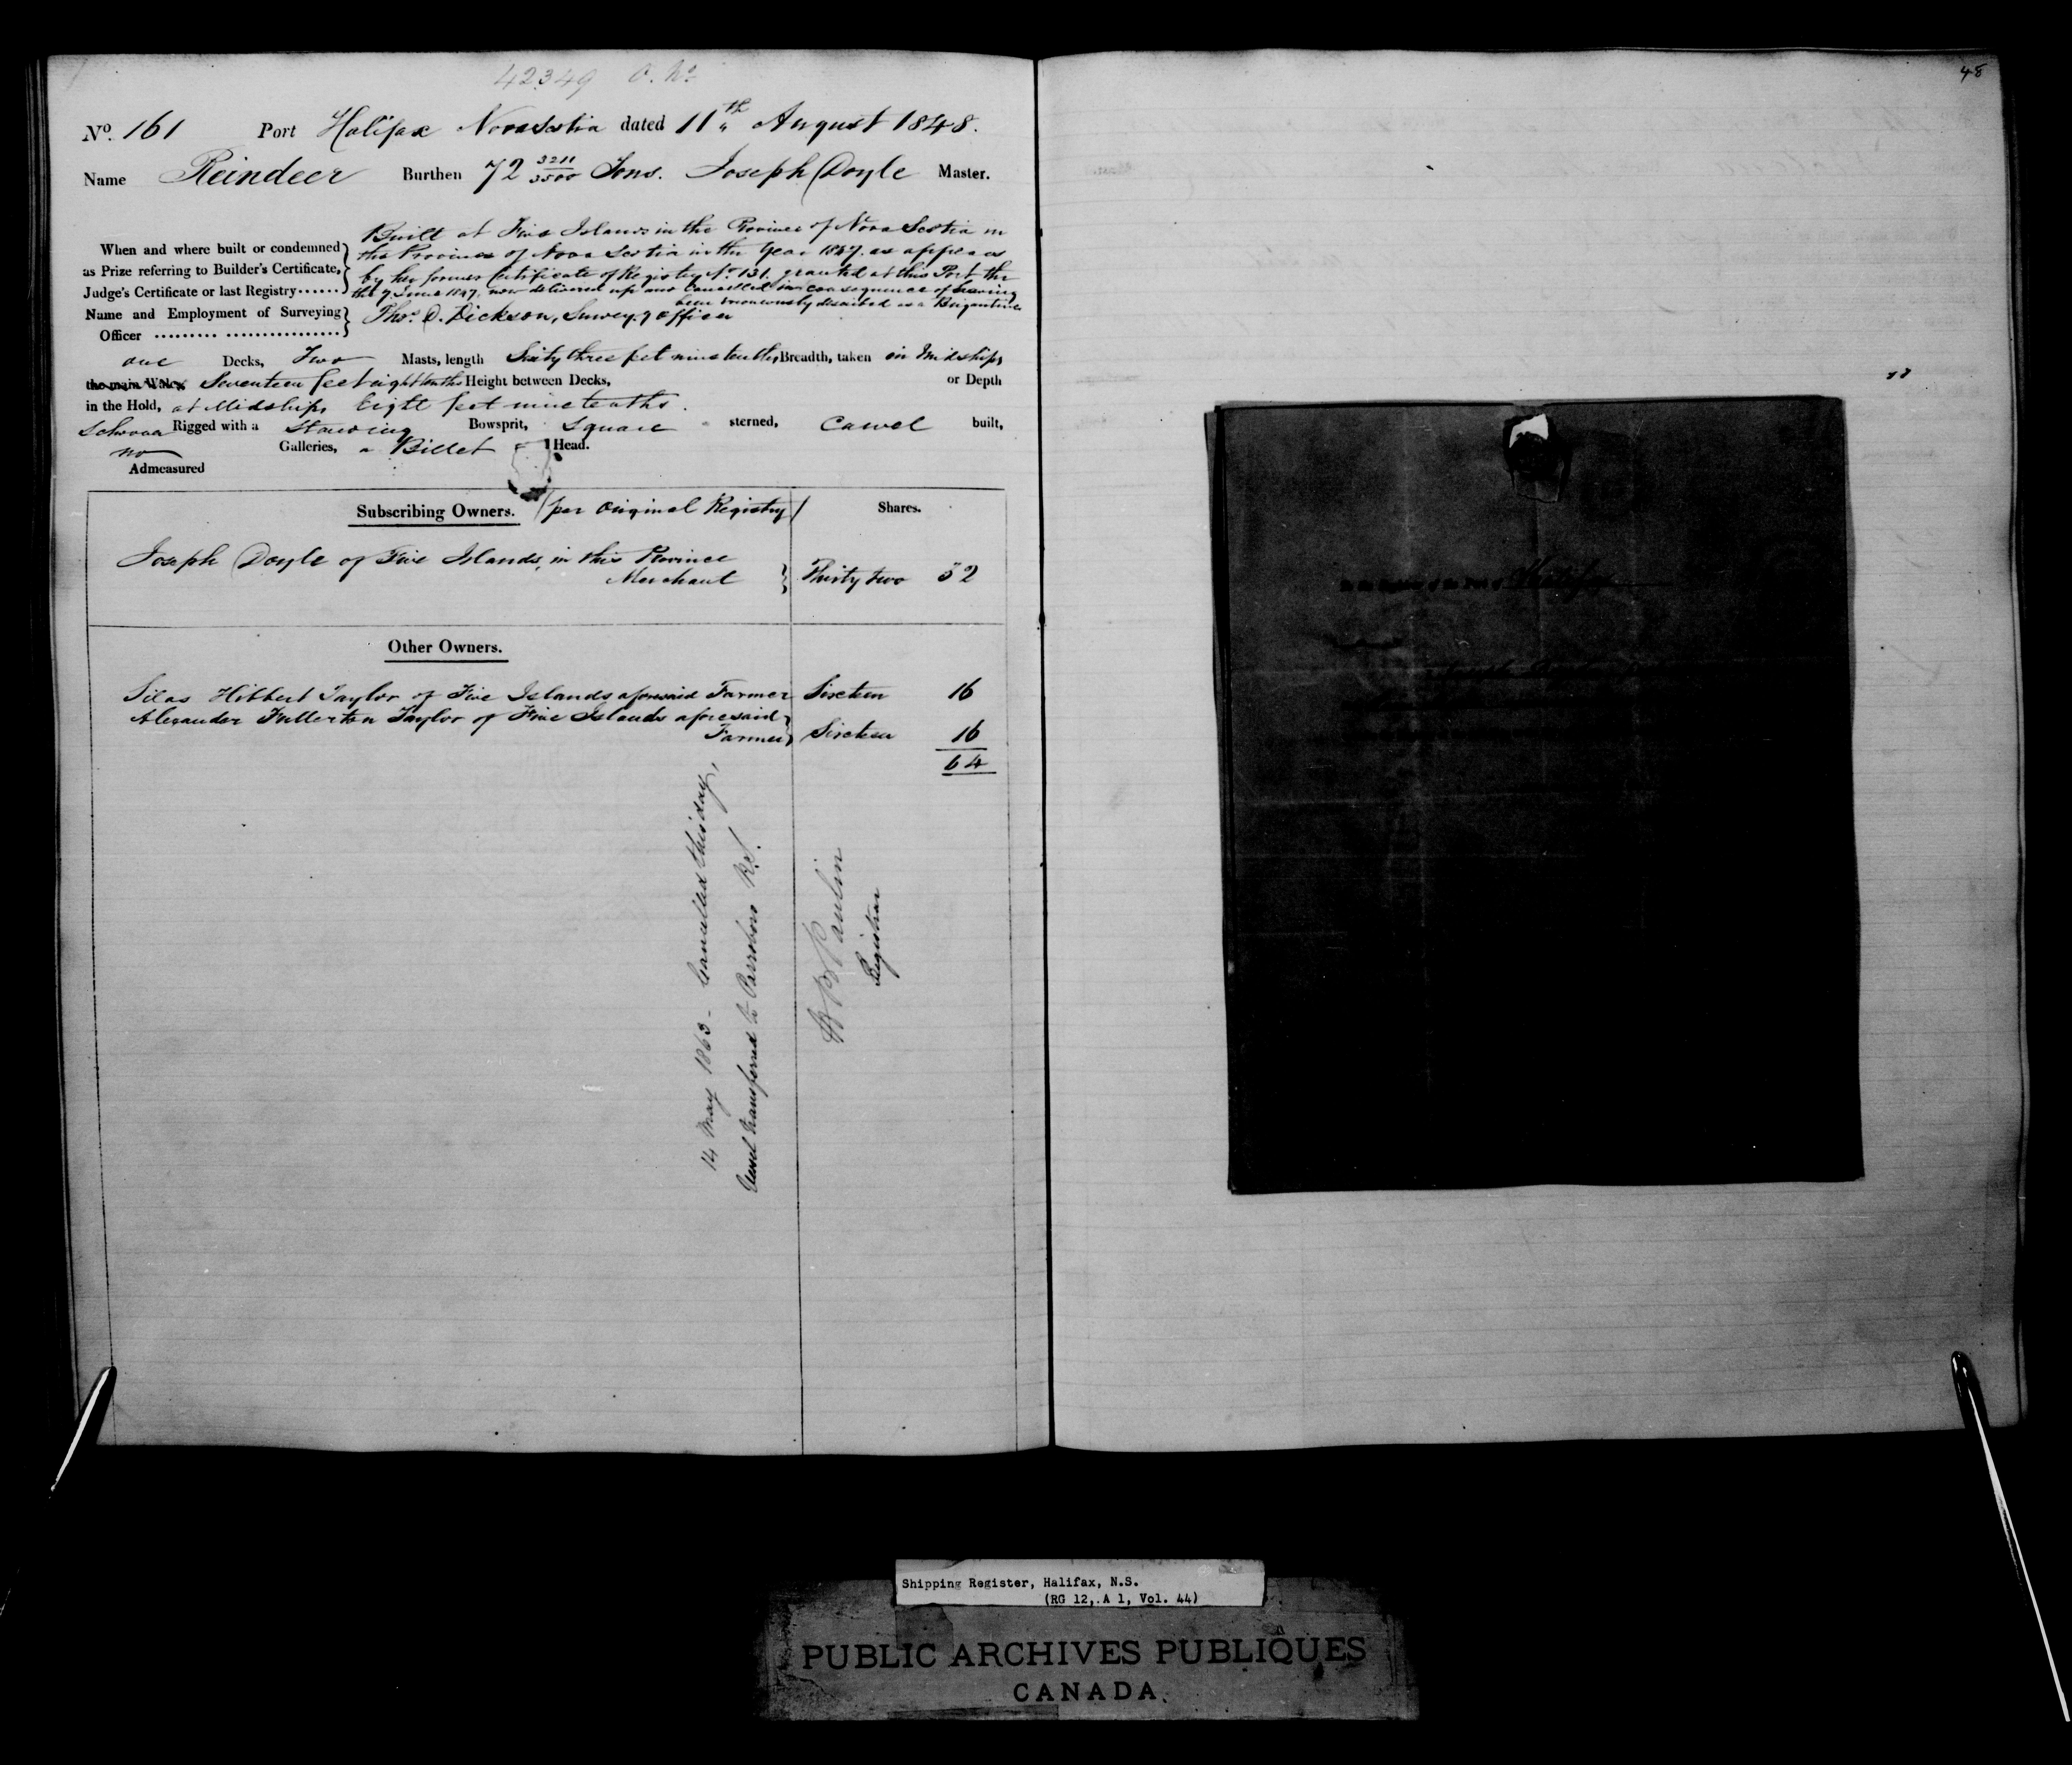 42349 O. No.
No. 161 Port Halifax Nova Scotia dated 11th August 1848.
Name Reindeer Burthen 72 3211/3500 Tons. Joseph Doyle Master.
When and where built or condemned as Prize referring to Builder's Certificate, Judge's Certificate or last Registry......
Built at Five Islands in the Province of Nova Scotia in
the Province of Nova Scotia in the Year 1847. as appears
by her former Certificate of Registry No. 131. granted at this Port the
the 7 June 1847, now delivered up and Cancelled in consequence of having
been erroneously described as a Brigantine
Name and Employment of Surveying Officer ......... .................
Thos. D. Dickson, Survey.g Officer
one Decks, Two Masts, length Sixty three feet nine tenths, Breadth, taken in Midships
the main Wales Seventeen feet eight tenths Height between Decks, or Depth
in the Hold, at Midships Eight feet nine tenths.
Schooner Rigged with a Standing Bowsprit, Square sterned, Carvel built,
no Galleries, a Billet Head.
Admeasured
Subscribing Owners. (per Original Registry) Shares.
Joseph Doyle of Five Islands, in this Province
Merchant } Thirty two 32
Other Owners.
Silas Hibbert Taylor of Five Islands aforesaid Farmer Sixteen 16
Alexander Fullerton Taylor of Five Islands aforesaid
Farmer } Sixteen 16
64
14 May 1863 - Cancelled this day,
Vessel transferred to Parrsboro N.S.
Registrar
48
Shipping Register, Halifax, N.S.
(RG 12, A 1, Vol. 44)
PUBLIC ARCHIVES PUBLIQUES
CANADA